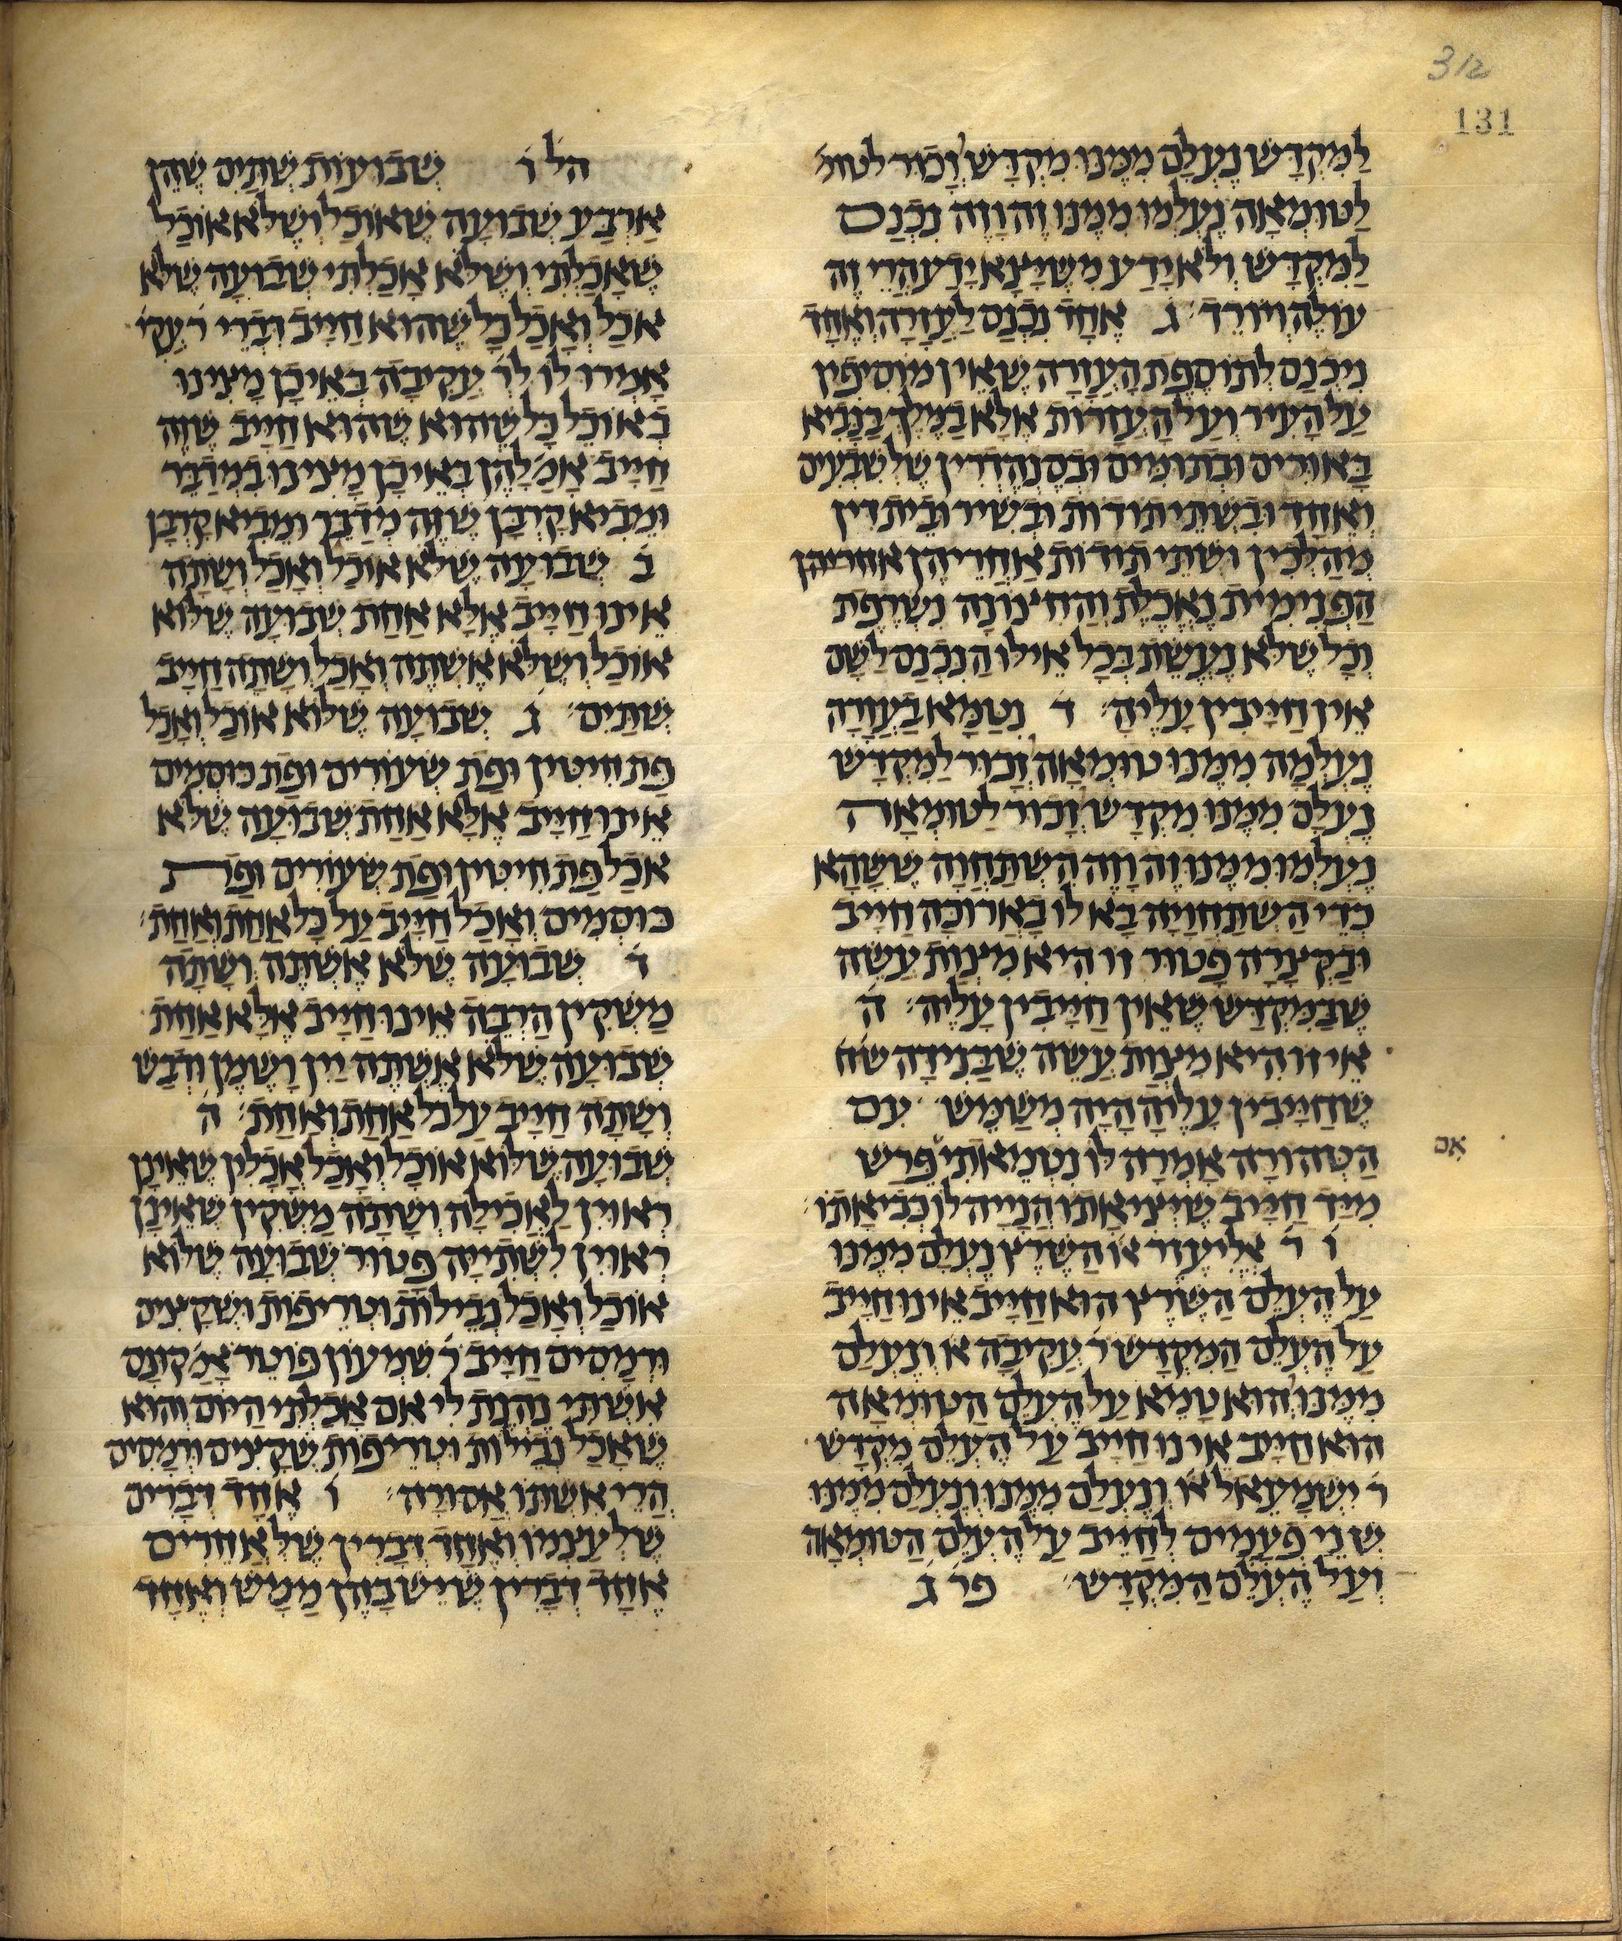 312
131
למקדש נעלם ממנו מקדש וזכור לטומ׳
לטומאה נעלמו ממנו זה וזה ונכנס
למקדש ולא ידע משיצא ידע הרי זה
עולה ויורד ג אחד נכנס לעזרה ואחד
ניכנס לתוספת העזרה שאין מוסיפין
על העיר ועל העזרות אלא במלך בנביא
באורים ובתומים ובסנהדרין שלשבעים
ואחד ובשתי תודות ובשיר ובית דין
מהלכין ושתי תודות אחריהן אחריהן
הפנימית נאכלת והחיצונה נשרפת
וכל שלא נעשת בכל אילו הנכנס לשם
אין חייבין עליה ד ניטמא בעזרה
נעלמה ממנו טומאה וזכור למקדש
נעלם ממנו מקדש וזכור לטומאה
נעלמו ממנו זה וזה השתחוה ששהא
כדי השתחויה בא לו בארוכה חייב
ובקצרה פטור זו היא מצות עשה
שבמקדש שאין חייבין עליה ה
איזו היא מצות עשה שבנידה
שחייבין עליה היה משמש עם
הטהורה אמרה לו נטמאתי פרש
אם
מיד חייב שיציאתו הנייה לו כביאתו
ו ר׳ אליעזר או׳ השרץ נעלם ממנו
על העלם השרץ הוא חייב אינו חייב
על העלם המקדש ר׳ עקיבה או׳ ונעלם
ממנו והוא טמא על העלם הטומאה
הוא חייב אינו חייב על העלם מקדש
ר׳ ישמעאל או׳ ונעלם ממנו ונעלם ממנו
שני פעמים לחייב על העלם הטומאה
ועל העלם המקדש פר׳ ג
הל׳ ו שבועות שתים שהן
ארבע שבועה שאוכל ושלא אוכל
שאכלתי ושלא אכלתי שבועה שלא
אכל ואכל כל שהוא חייב דברי ר׳ עקי׳
אמרו לו לר׳ עקיבה באיכן מצינו
באוכל כל שהוא שהוא חייב שזה
חייב אמ׳ להן באיכן מצינו במדבר
ומביא קרבן שזה מדבר ומביא קרבן
ב שבועה שלא אוכל ואכל ושתה
אינו חייב אלא אחת שבועה שלוא
אוכל ושלא אשתה ואכל ושתה חייב
שתים ג שבועה שלוא אוכל ואכל
פת חיטין ופת שעורים ופת כוסמים
אינו חייב אלא אחת שבועה שלא
אכל פת חיטין ופת שעורים ופת
כוסמים ואכל חייב על כל אחת ואחת
ד שבועה שלא אשתה ושתה
משקין הרבה אינו חייב אלא אחת
שבועה שלא אשתה יין ושמן ודבש
ושתה חייב על כל אחת ואחת ה
שבועה שלוא אוכל ואכל אכלין שאינן
ראוין לאכילה ושתה משקין שאינן
ראוין לשתייה פטור שבועה שלוא
אוכל ואכל נבילות וטריפות ושקצים
ורמסים חייב ר׳ שמעון פוטר אמ׳ קונם
אשתי נהנת לי אם אכלתי היום והוא
שאכל נבילות וטריפות שקצים ורמסים
הרי אשתו אסורה ו אחד דברים
שלעצמו ואחד דברין שלאחרים
אחד דברין שיש בהן ממש ואחד